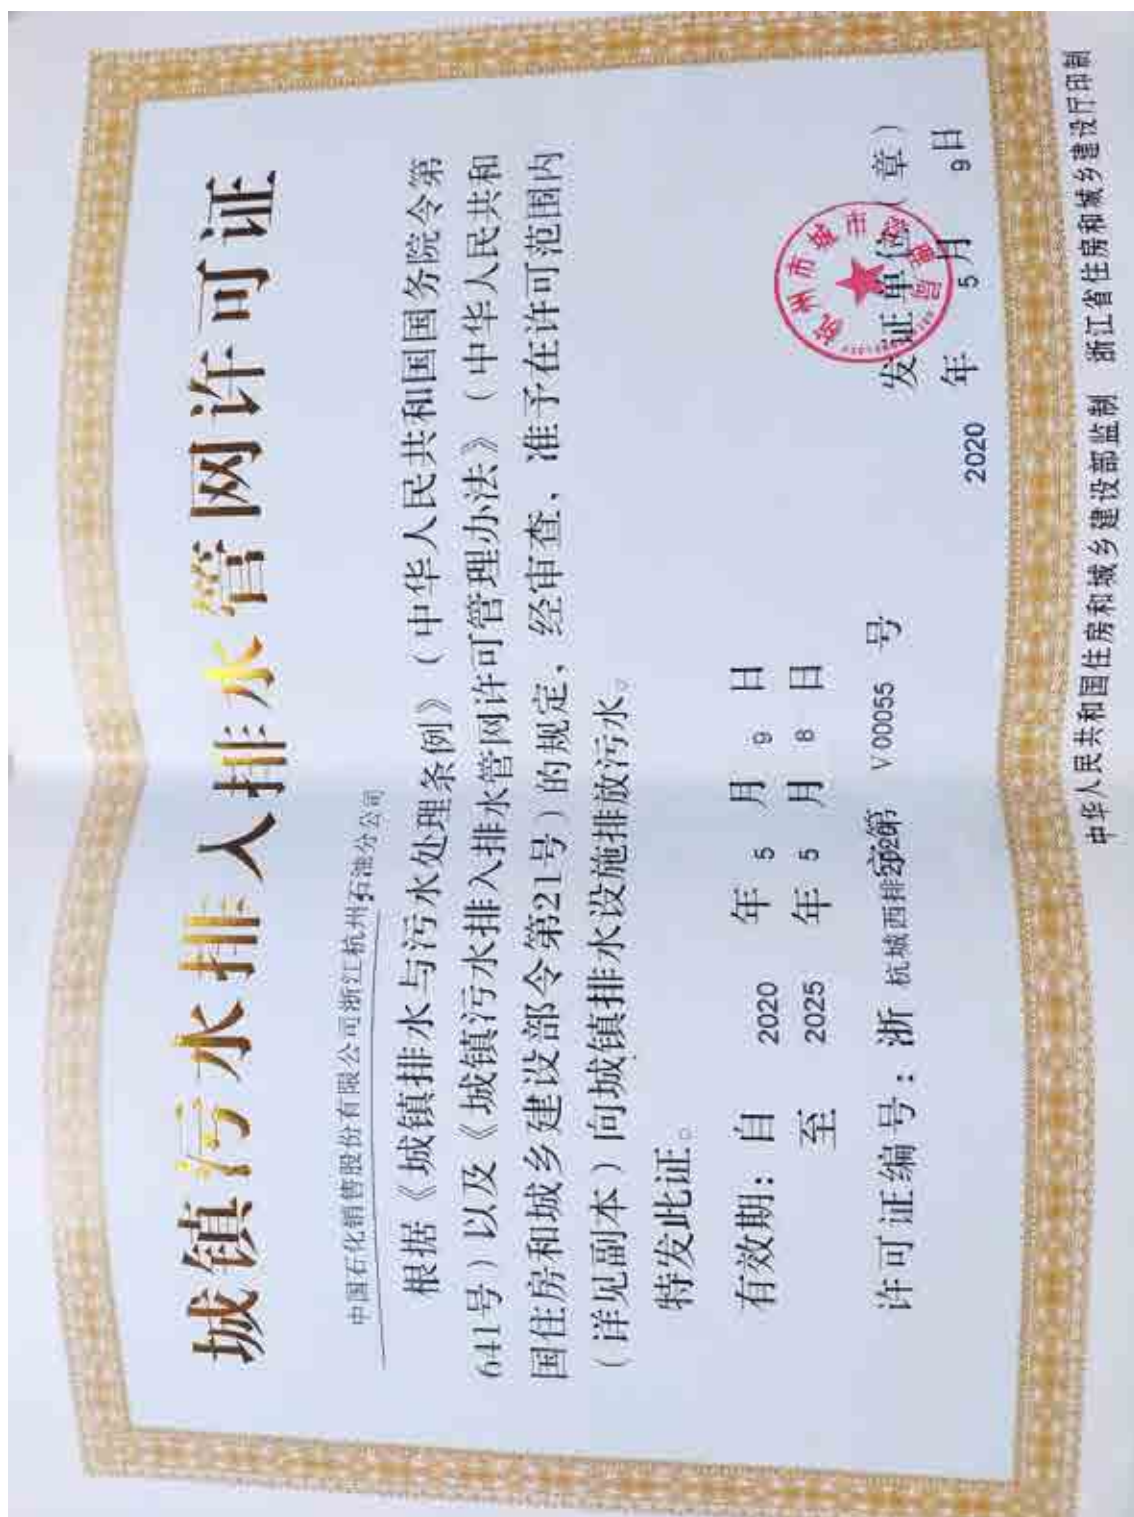 城镇污水排入排水管网许可证
中国石化销售股份有限公司浙江杭州石油分公司
根据《城镇排水与污水处理条例》（中华人民共和国国务院令第
641号）以及《城镇污水排入排水管网许可管理办法》（中华人民共和
国住房和城乡建设部令第21号）的规定，经审查，准予在许可范围内
（详见副本）向城镇排水设施排放污水。
特发此证。
有效期：自 2020 年 5 月 9 日
至 2025 年 5 月 8 日
许可证编号：浙 杭城西排2020字第 V00055 号
发证单位（章）
2020 年 5 月 9 日
杭州市城市管理局
中华人民共和国住房和城乡建设部监制 浙江省住房和城乡建设厅印制